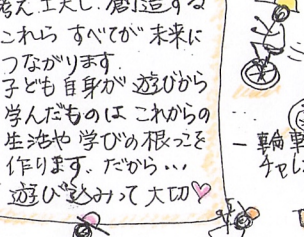 考え 工夫し. 創造する
これら すべてが 未来に
つながります.
子ども 自身が 遊びから
学んだものは これからの
生活や 学びの 根っこを
作ります. だから...
遊び込みって 大切♡
一輪車
チャレ